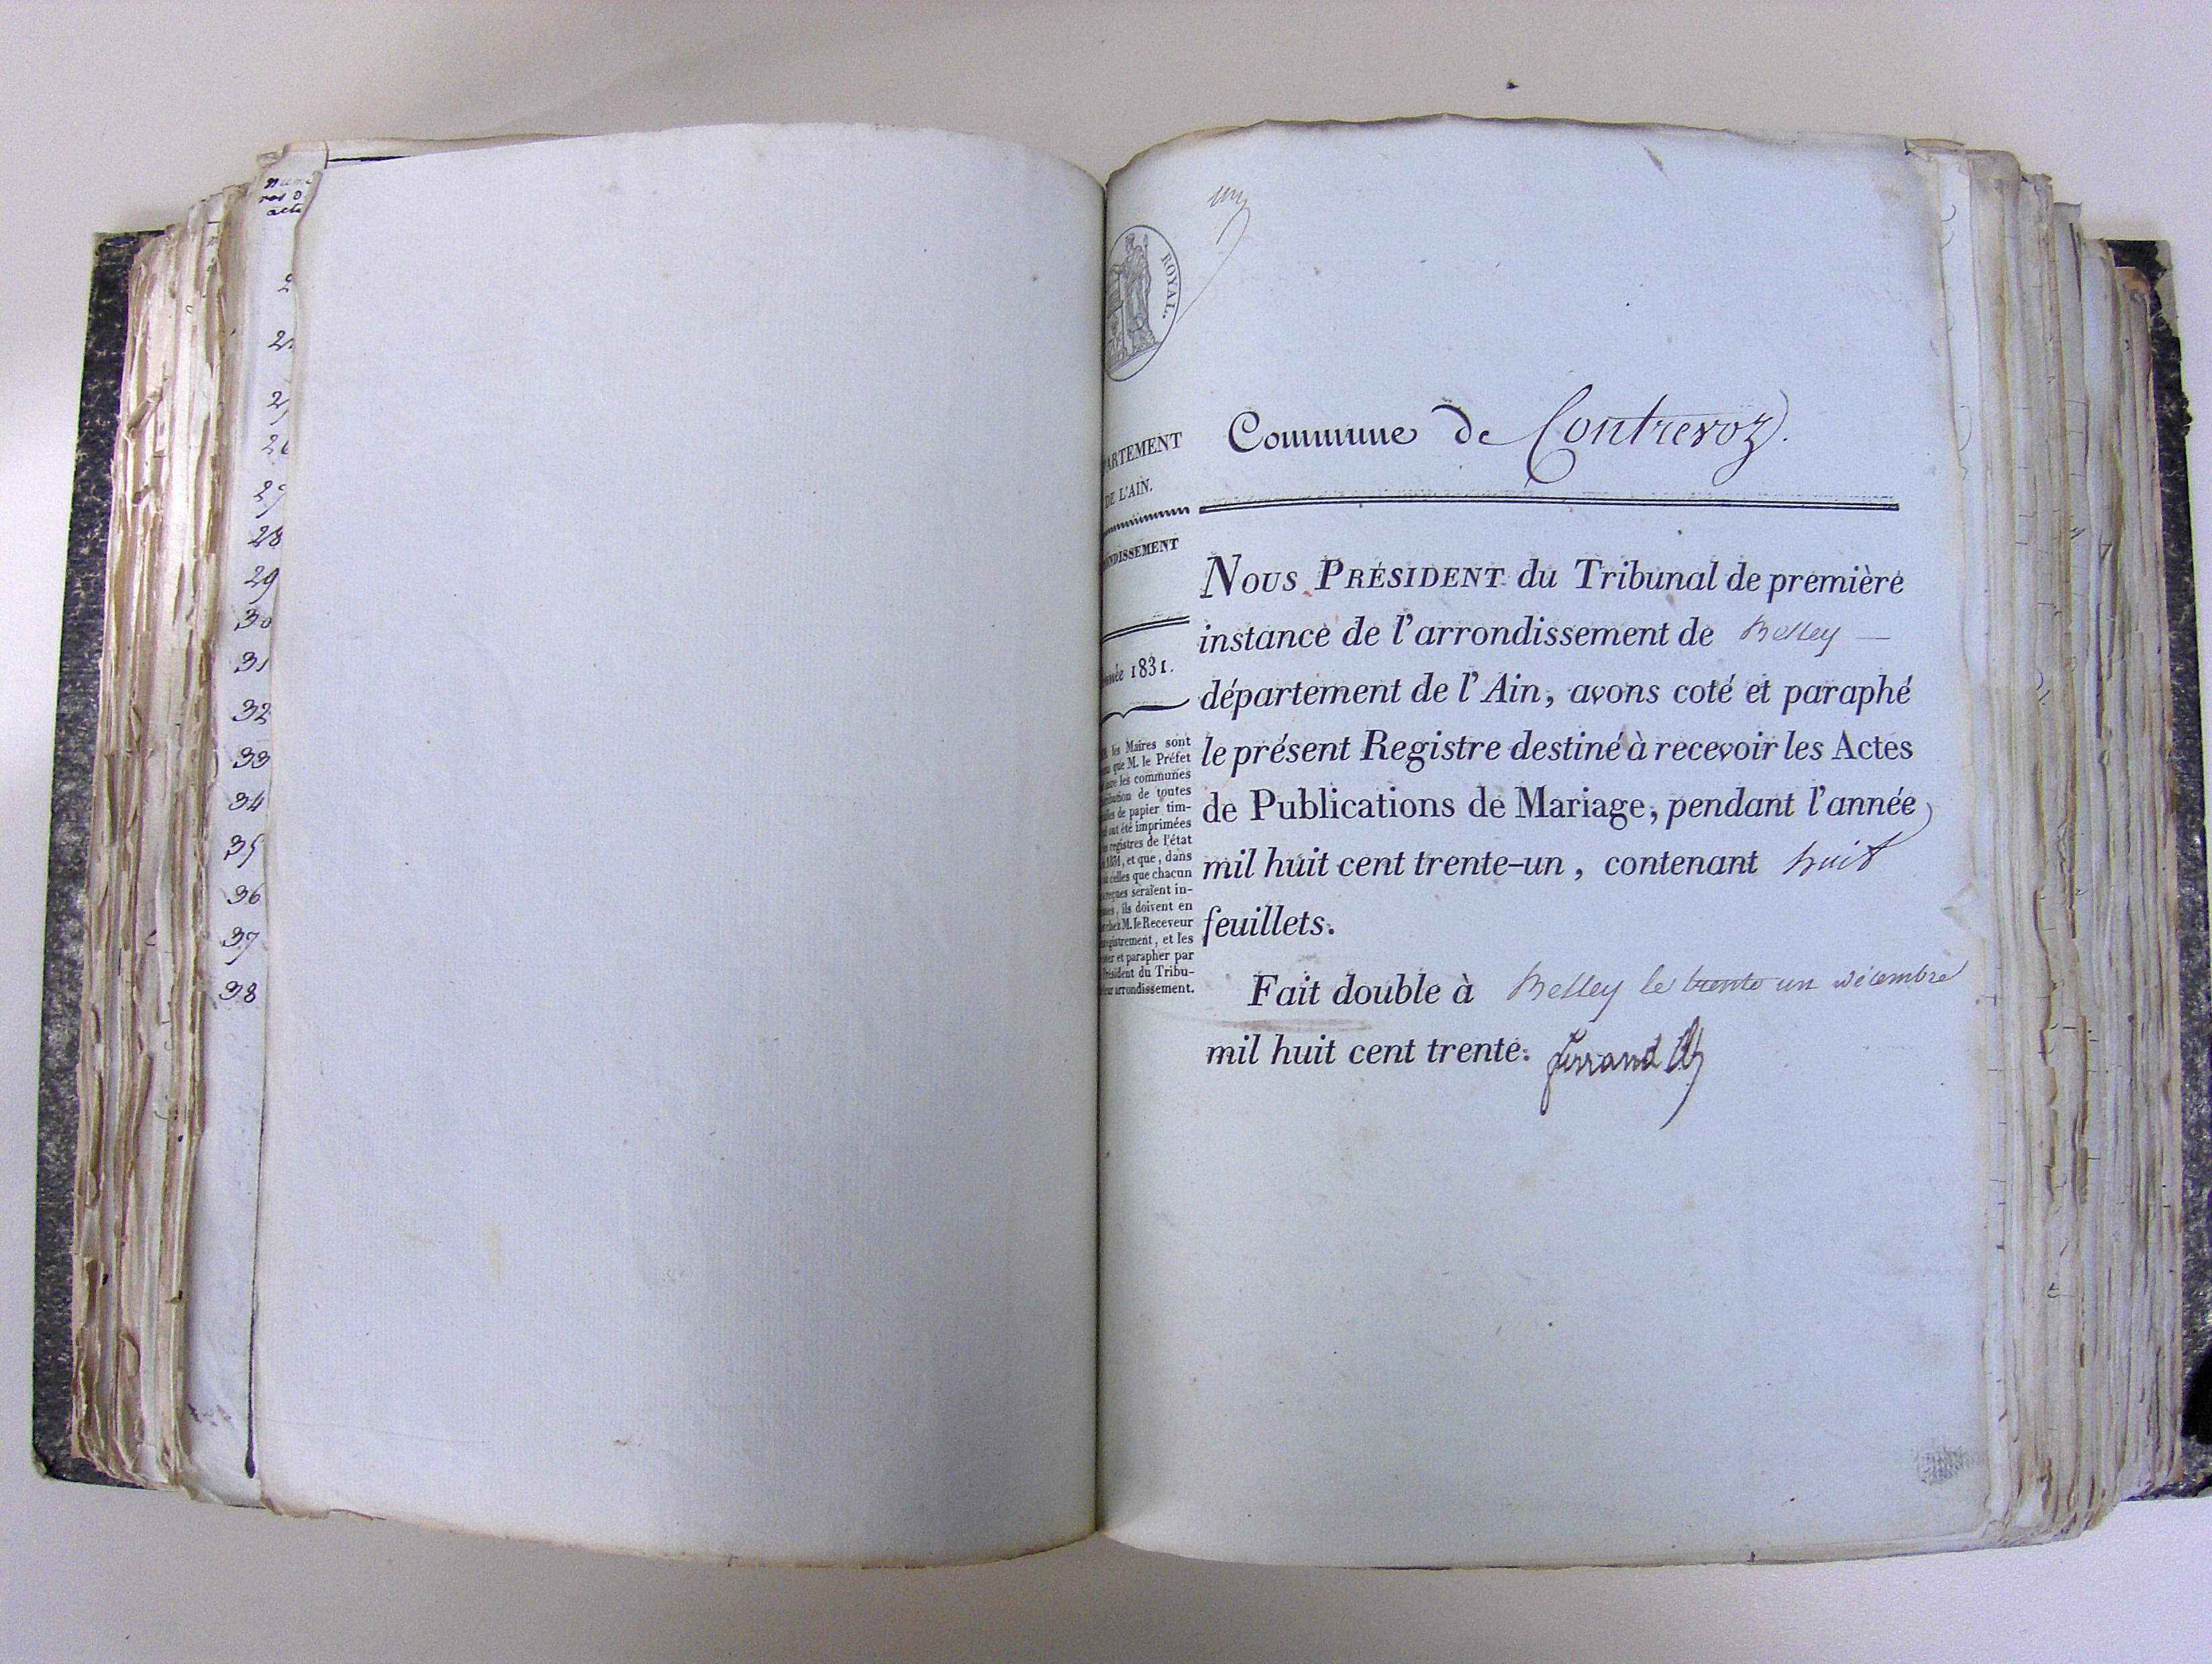 acte
26
28
29
30
31
32
33
34
35
36
37
38
un
ROYAL.
Commune de Contrevoz.
ARTEMENT
DE L'AIN.
NDISSEMENT
1831.
les Maires sont
que M. le Préfet
les communes
de toutes
de papier tim-
ont été imprimées
registres de l'état
1831, et que, dans
celles que chacun
seraient in-
, ils doivent en
M. le Receveur
, et les
et parapher par
Président du Tribu-
arrondissement.
NOUS PRÉSIDENT du Tribunal de première
instance de l'arrondissement de Belley —
département de l'Ain, avons coté et paraphé
le présent Registre destiné à recevoir les Actes
de Publications de Mariage, pendant l'année
mil huit cent trente-un, contenant huit
feuillets.
Fait double à Belley le trente un décembre
mil huit cent trente. Ferrand